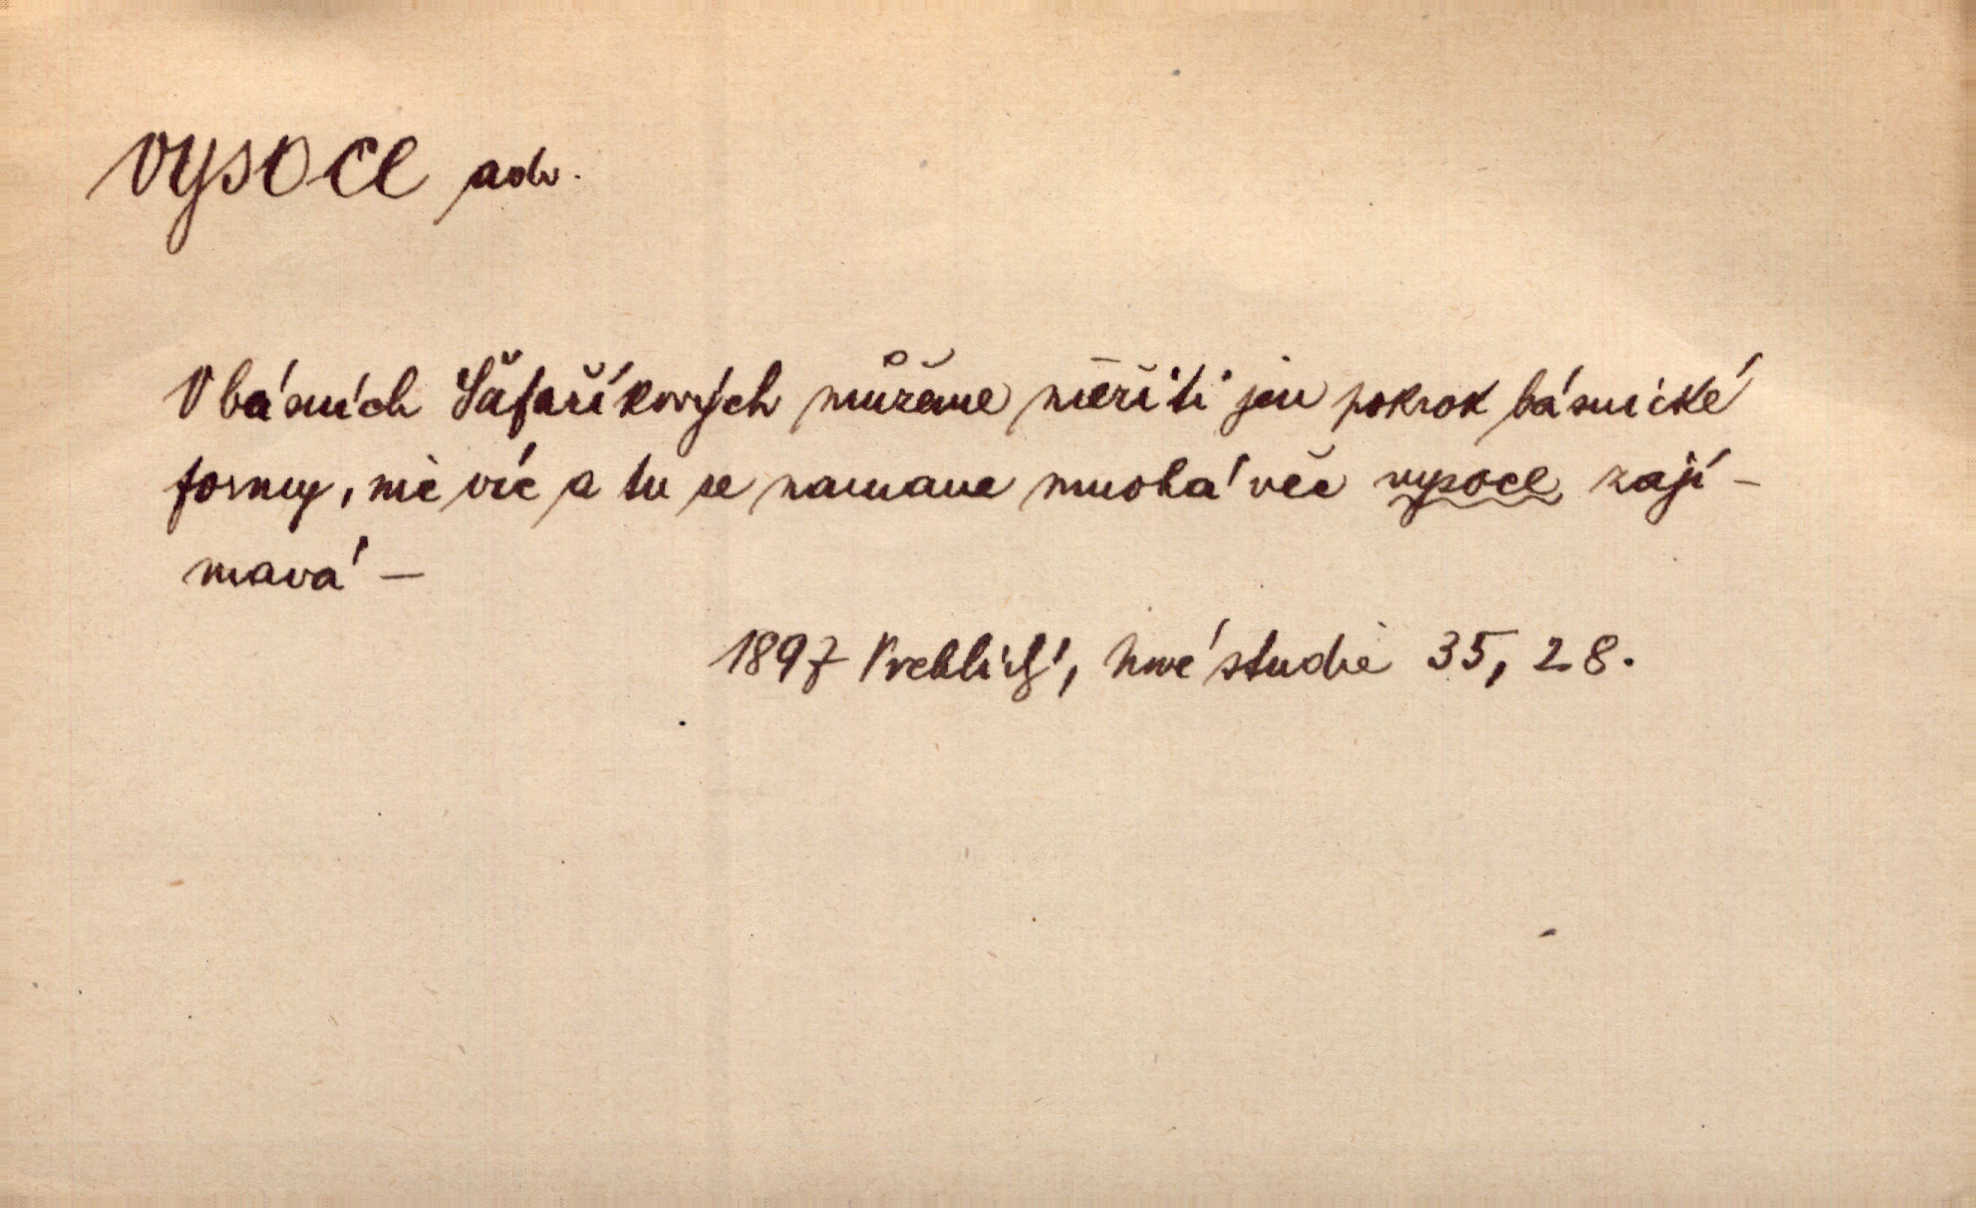 vysoce adv.
V básních Šafaříkových můžeme měřiti jen pokrok básnické
formy, nic víc a tu se namane mnohá věc vysoce zají-
mavá –
1897 Vrchlický, Nové studie 35, 28.